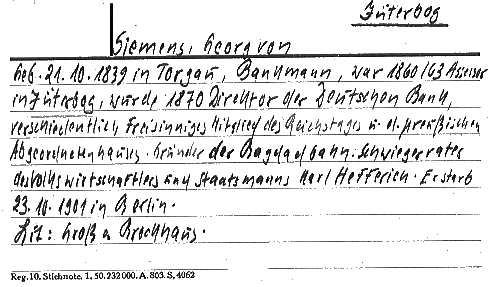 Jüterbog
Siemens, Georg von
Geb. 21. 10. 1839 in Torgau, Bankmann, war 1860/63 Assessor
in Jüterbog, wurde 1870 Direktor der Deutschen Bank,
verschiedentlich Freisinniges Mitglied des Reichstages u. d. preußischen
Abgeordnetenhauses. Gründer der Bagdadbahn. Schwiegervater
des Volkswirtschaftlers und Staatsmanns Karl Helfferich. Er starb
23. 10. 1901 in Berlin.
Lit: Groß. Brockhaus.
Reg. 10. Stichnote. 1. 50. 232000. A. 803. S. 4062